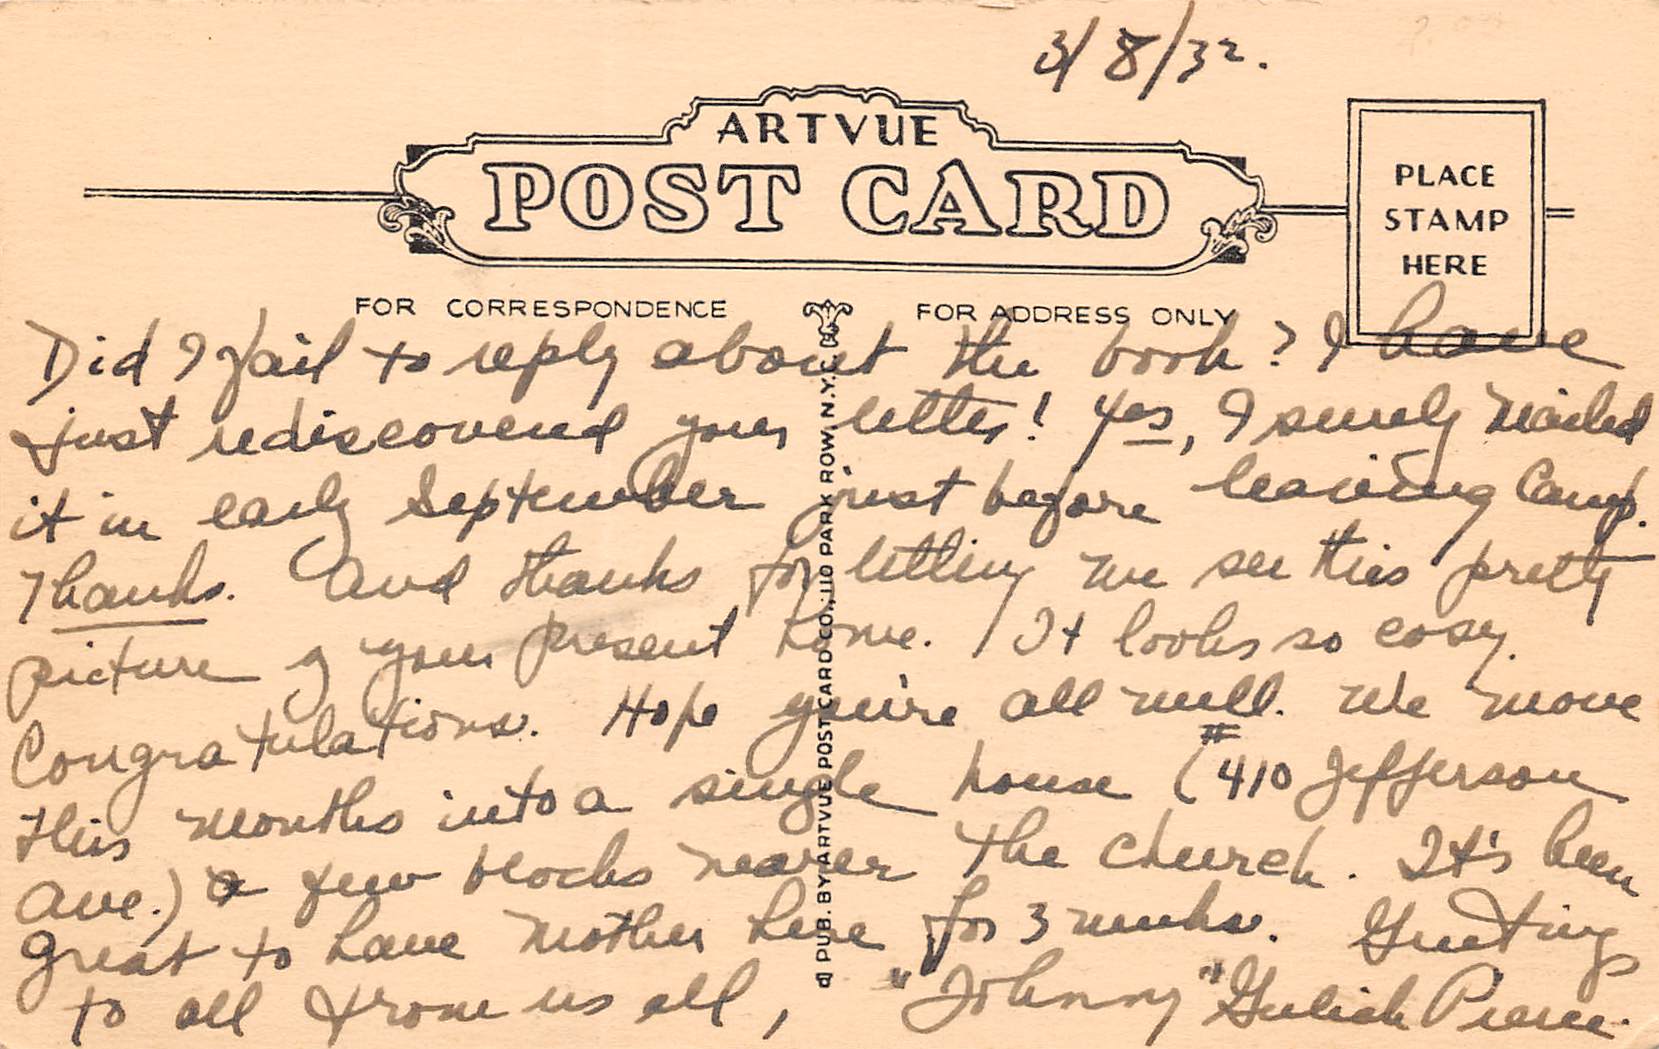 3/8/32.
ARTVUE
POST CARD
PLACE
STAMP
HERE
FOR CORRESPONDENCE
FOR ADDRESS ONLY
Did I fail to reply about the book? I have
just rediscovered your letter! Yes, I surely mailed
it in early September just before leaving Camp.
Thanks. And thanks for letting me see this pretty
picture of your present home. It looks so cosy.
Congratulations. Hope you're all well. We move
this months into a single house (#410 Jefferson
Ave.) a few blocks nearer the church. It's been
great to have Mother here for 3 weeks. Greetings
to all from us all, "Johnny" Gulick Pierce.
PUB. BY ARTVUE POST CARD CO., 110 PARK ROW, N.Y.C.